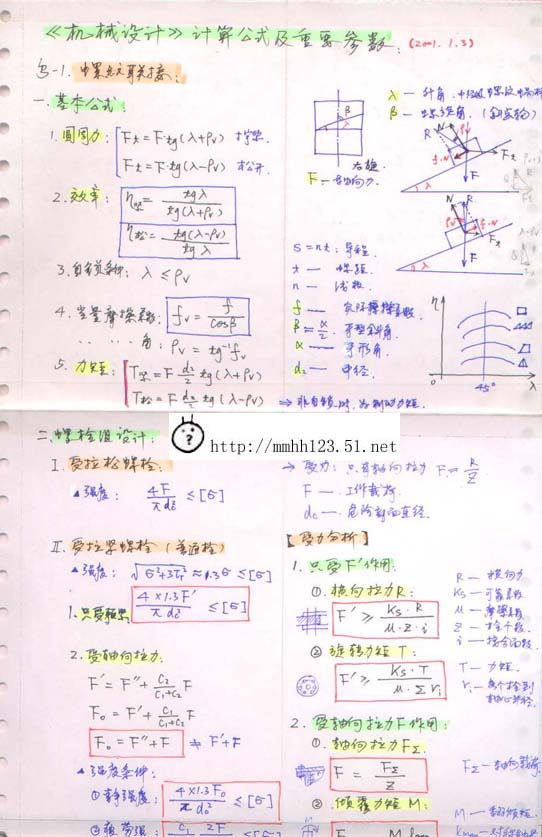 《机械设计》计算公式及重要参数: (2001.1.3)
岛-1. 螺纹联接:
一.基本公式:
1. 圆周力: Ft = F·tg(λ+ρv) 拧紧.
Ft = F·tg(λ-ρv) 松开.
2. 效率: η紧 = tgλ / tg(λ+ρv)
η松 = tg(λ-ρv) / tgλ
3. 自锁条件: λ ≤ ρv
4. 当量摩擦系数: fv = f / cosβ
角: ρv = tg⁻¹fv
5. 力矩: T紧 = F d₂/2 tg(λ+ρv)
T松 = F d₂/2 tg(λ-ρv) ⇒ 非自锁时, 为制动力矩.
λ — 升角.
β —
右旋
F — 轴向力
S = nt: 导程
t — 螺距
n — 线数
f — 实际摩擦系数.
β = α/2 牙型斜角
α — 牙形角
d₂ — 中径
η
λ
45°
0
二. 螺栓组设计:
http://mmhh123.51.net
I. 受拉松螺栓:
▲强度: 4F / πdc² ≤ [σ]
→ 受力: 只受轴向拉力 F = R / Z
F — 工作载荷.
dc — 危险剖面直径.
II. 受拉紧螺栓 (普通栓)
▲强度: √σ²+3τ² ≈ 1.3σ ≤ [σ]
1. 只受预紧 4×1.3F' / πdc² ≤ [σ]
2. 受轴向拉力:
F' = F'' + C₂/(C₁+C₂) F
F₀ = F' + C₁/(C₁+C₂) F
F₀ = F'' + F ≠ F'+F
▲强度条件:
①静强度: 4×1.3F₀ / πdc² ≤ [σ]
②疲劳强: C₁ 2F ≤ [σ
【受力分析】
1. 只受F'作用:
①. 横向拉力R:
F' ≥ Ks·R / μ·Z·i
② 旋转力矩T:
F' ≥ Ks·T / μ·Σri
R — 横向力
Ks — 可靠系数
μ — 摩擦系数
Z — 栓个数.
i — 接合面数.
T — 力矩.
ri — 每个栓到轴心半径.
2. 受轴向拉力F作用:
①. 轴向力FΣ.
F = FΣ / Z
FΣ — 轴向载荷.
②. 倾覆力矩M:
M — 倾倒矩.
F M Lmax